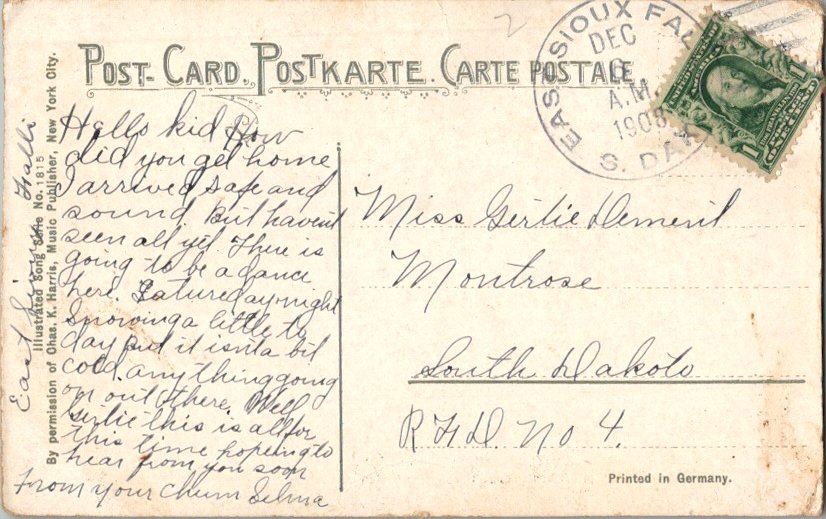 POST-CARD. POSTKARTE. CARTE POSTALE.
EAST SIOUX FALLS
DEC
A.M.
1908
S. DAK.
1 1
Hallo kid How
did you get home
I arrived safe and
sound. But havent
seen all yet. There is
going to be a dance
here. Saturedaynight
Snowing a little to
day but it isnt a bit
cold. anything going
on out there. Well
Gertie this is all for
this time hopeing to
hear from you soon
From your Chum Selma
East Sioux Falls
Illustrated Song Serie No. 1815
By permission of Chas. K. Harris, Music Publisher, New York City.
Miss Gertie Dement
Montrose
South Dakota
R F D. No 4.
Printed in Germany.